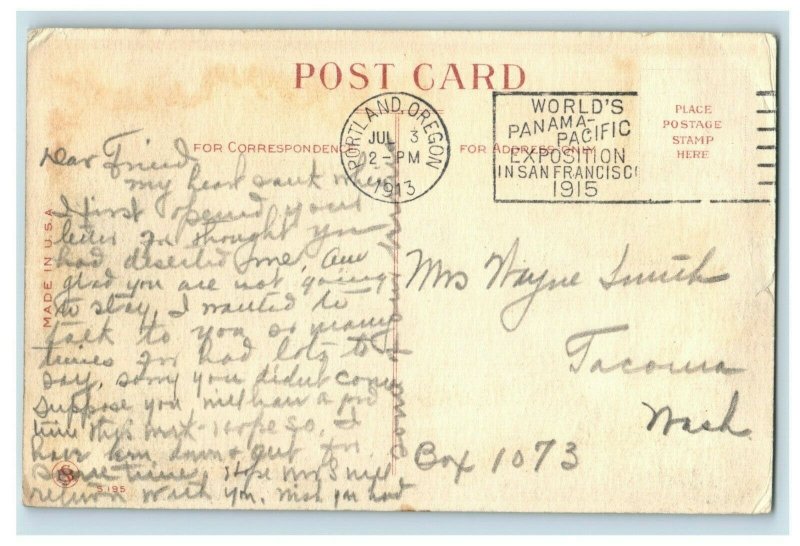 POST CARD
PORTLAND, OREGON
JUL 3
2-PM
1913
WORLD'S
PANAMA-
PACIFIC
EXPOSITION
IN SAN FRANCISC
1915
PLACE
POSTAGE
STAMP
HERE
FOR CORRESPONDENCE
FOR ADDRESS ONLY
MADE IN U.S.A
Dear Friend
my heart sank when
I first opened your
letter for thought you
had deserted me. Am
glad you are not going
to stay, I wanted to
talk to you so many
times for had lots to
say, sorry you didnt come
suppose you will have a
time this hope so, I
have been down & out for
sometime. Hope Mr S will
return with you. wish you had
Mrs Wayne Smith
Tacoma
Wash
Box 1073
S 195